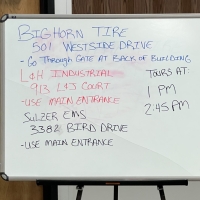 BIGHORN TIRE
501 WESTSIDE DRIVE
- GO THROUGH GATE AT BACK OF BUILDING
L&H INDUSTRIAL
913 L&J COURT
- USE MAIN ENTRANCE
TOURS AT:
1 PM
2:45 PM
SULZER EMS
3382 BIRD DRIVE
- USE MAIN ENTRANCE